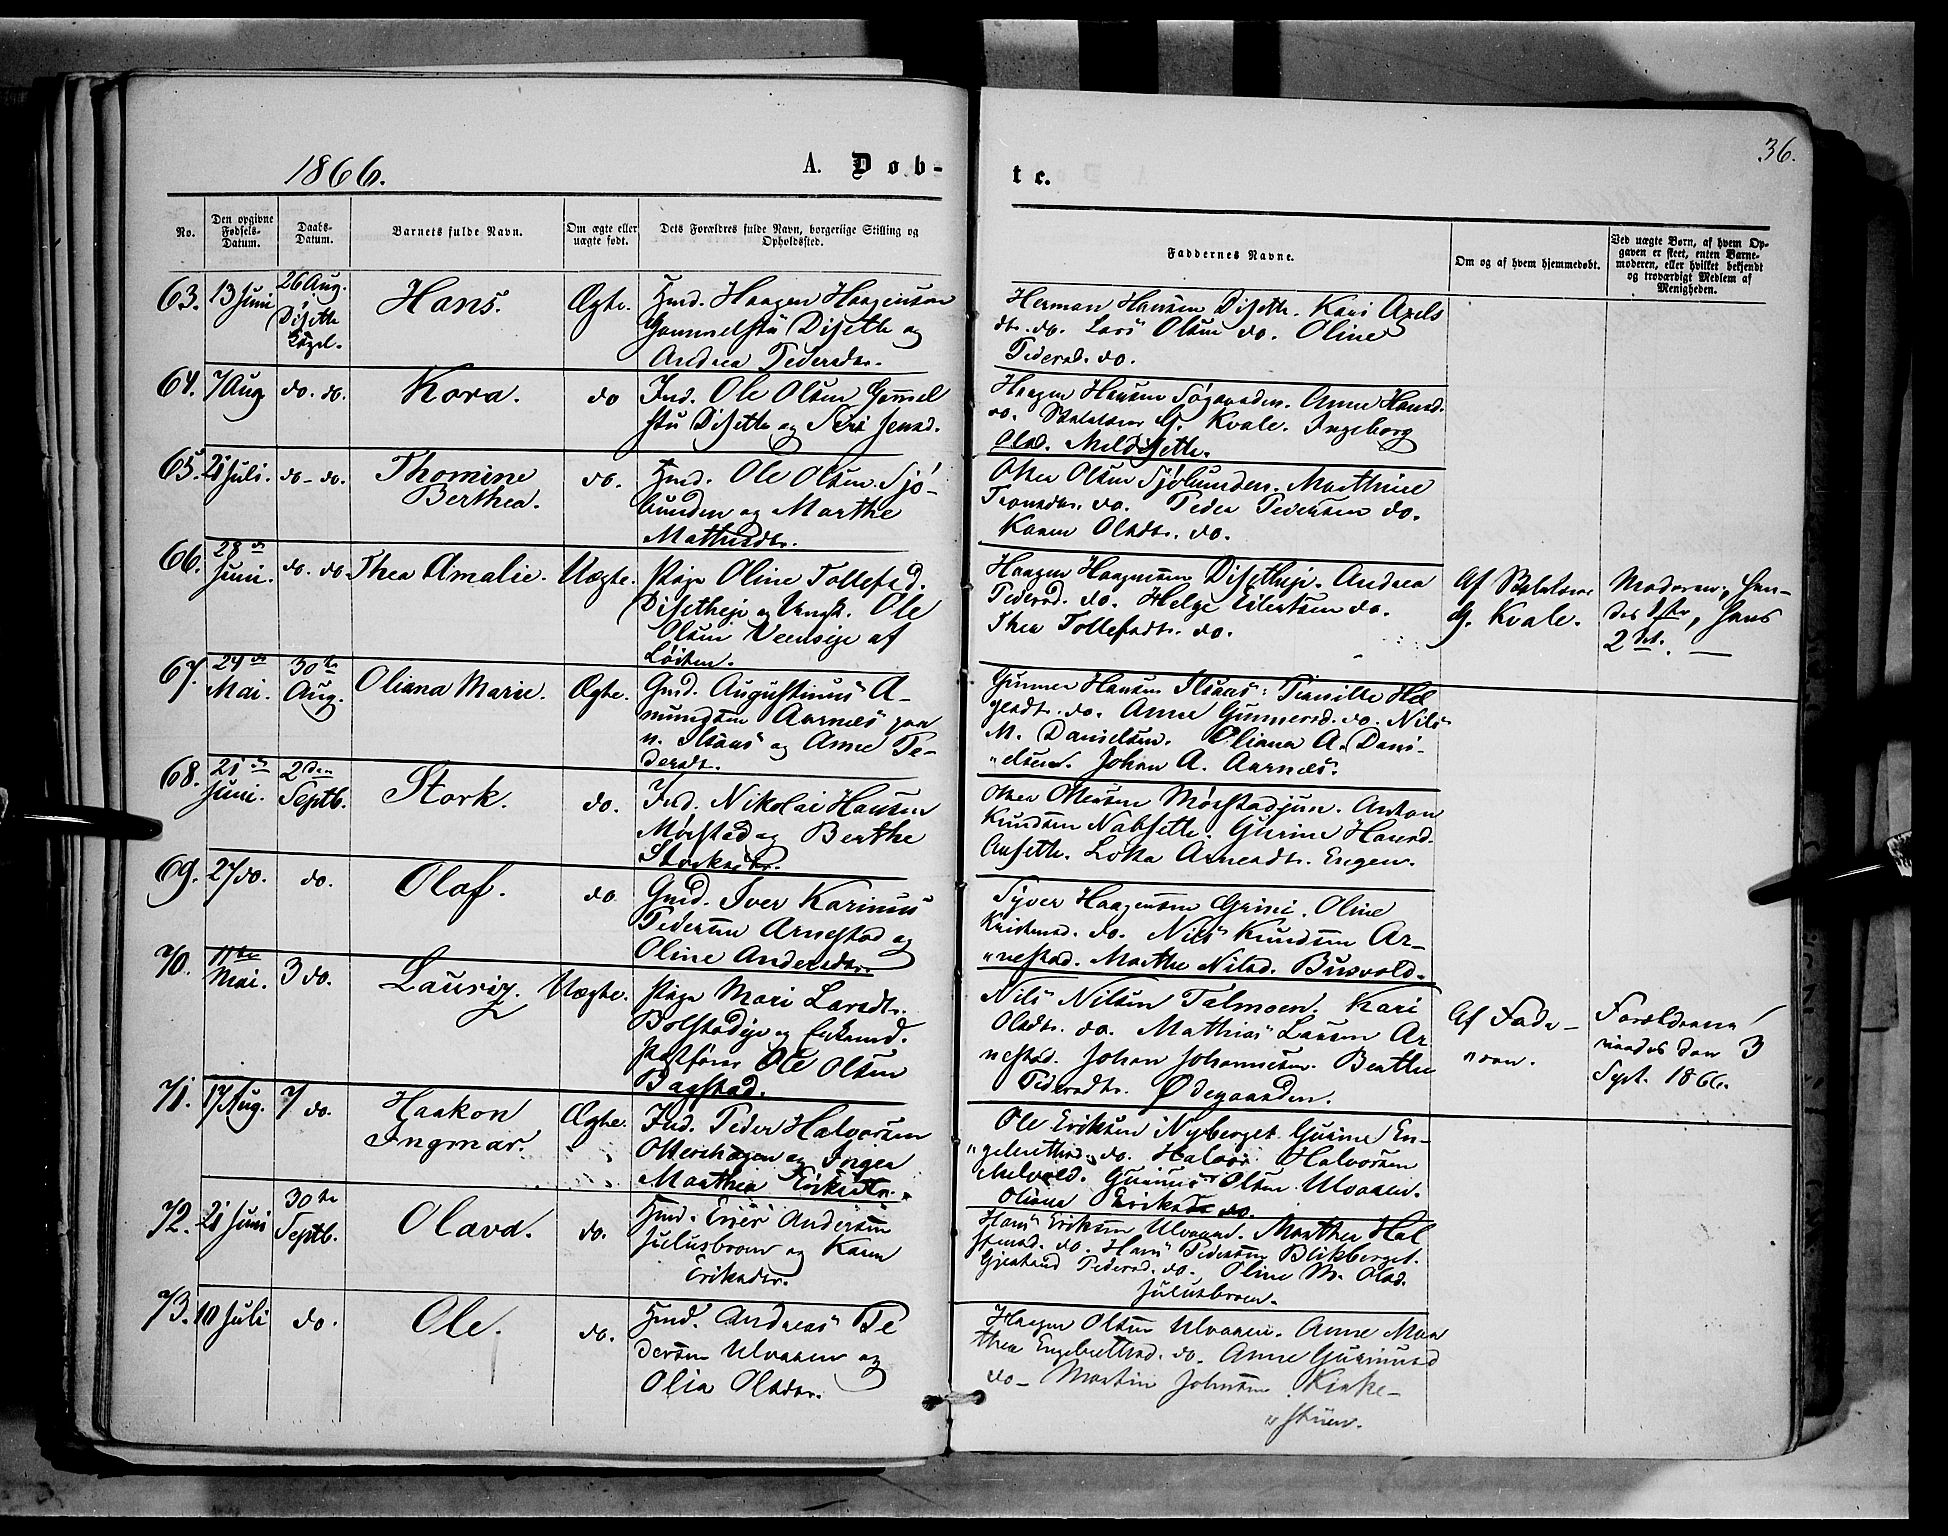 1866.
A. Døb-
te.
36.
No.
Den opgivne Fødsels-Datum.
Daabs-Datum.
Barnets fulde Navn.
Om ægte eller uægte født.
Dets Forældres fulde Navn, borgerlige Stilling og Opholdssted.
Faddernes Navne.
Om og af hvem hjemmedøbt.
Ved uægte Børn, af hvem Op-
gaven er skeet, enten Barne-
moderen, eller hvilket bekjendt
og troværdigt Medlem af
Menigheden.
63. 13 Juni
26 Aug.
Disette
Capel.
Hans.
Ægte.
Hmd. Haagen Haagensen
Gammelstu Disette og
Andrea Pedersdtr.
Herman Hansen Disette. Kari Axels
dtr. do. Lars Olsen do. Oline
Pedersd. do.
64. 7 Aug
do. do.
Kora.
do
Ind. Ole Olsen
stu Disette og Siri Jensd.
Haagen Hansen Anne Hansd.
do. G. Kvale. Ingeborg
Olsd. Meldisette.
65. 21 Juli.
do - do.
Thomine
Berthea.
do.
Hmd. Ole Olsen Sjø-
lunden og Marthe
Mathisdtr.
Otter Olsen Sjølunden. Marthine
do. Peder Pedersen do.
Karen Olsdtr. do.
66. 28de
Juni.
do. do.
Thea Amalie.
Uægte.
Pige Oline Tollefsd.
Disetteje og Ungk. Ole
Olsen af
Løiten.
Haagen Haagensen Disetteje. Andrea
Pedersd. do. Helge Eilertsen do.
Thea Tollefsdtr. do.
Af
G. Kvale.
Moderen, hen-
des 1ste, hans
2det. —
67. 24de
Mai.
30te
Aug.
Oliana Marie.
Ægte.
Gmd. Augustinus A-
mundsen Aarnæs paa
n. Ilsaas og Anne Pe-
dersdt.
Gunner Hansen Ilsaas. Pernille Hel
gesdtr. do. Anne Gunnersd. do. Nils
M. Danielsen. Oliana A. Dani-
"elsen. Johan A. Aarnæs.
68. 21de
Juni.
2den
Septb.
Stork.
do.
Ind. Nikolai Hansen
Mørstad og Berthe
Storksdtr.
Otter Ottersen Anton
Knudsen Nabsette. Gurine Hansd.
Ausette. Loka Arnesdtr. Engen.
69. 27 do.
do.
Olaf.
do
Gmd. Iver Karinus
Pedersen Arnestad og
Oline Andersdtr.
Syver Haagensen Grini. Oline
Kristensd. do. Nils Knudsen Ar-
"nestad. Marthe Nilsd. Busvold.
70. 11te
Mai.
3 do.
Lauriz.
Uægte.
Pige Mari Larsdtr.
Bolstadeje og Enkemd.
Ole Olsen
Bagstad.
Nils Nilsen Talmoen. Kari
Olsdtr. do. Mathias Larsen Ar
nestad. Johan Johannesen. Berthe
Pedersdtr. Ødegaarden.
Af Fade-
"ren.
Forældrene
viedes den 3
Sept. 1866.
71. 17 Aug.
7 do.
Haakon
Ingmar.
Ægte.
Ind. Peder Halvorsen
Ottershagen og Inger
Marthea Eriksdtr.
Ole Eriksen Nyberget. Gurine En-
"gebrethsd. do. Halvor Halvorsen
Melvold. Gunnerius Olsen Ulvaaen.
Oliana Eriksdtr. do.
72. 21 Juni
30te
Septb.
Olava.
do.
Hmd. Erik Andersen
Julusbroen og Karen
Eriksdtr.
Hans Eriksen Ulvaaen. Marthea Hal
stensd. do. Hans Pedersen Blikberget.
Gjertrud Pedersd. do. Oline M. Olsd.
Julusbroen.
73. 10 Juli
do.
Ole.
do.
Hmd. Andreas Pe
dersen Ulvaaen og
Olia Olsdtr.
Haagen Olsen Ulvaaen. Anne Mar
thea Engebrethsd. do. Anne Gurinusd
do - Martin Johnsen Kirke-
"stuen.